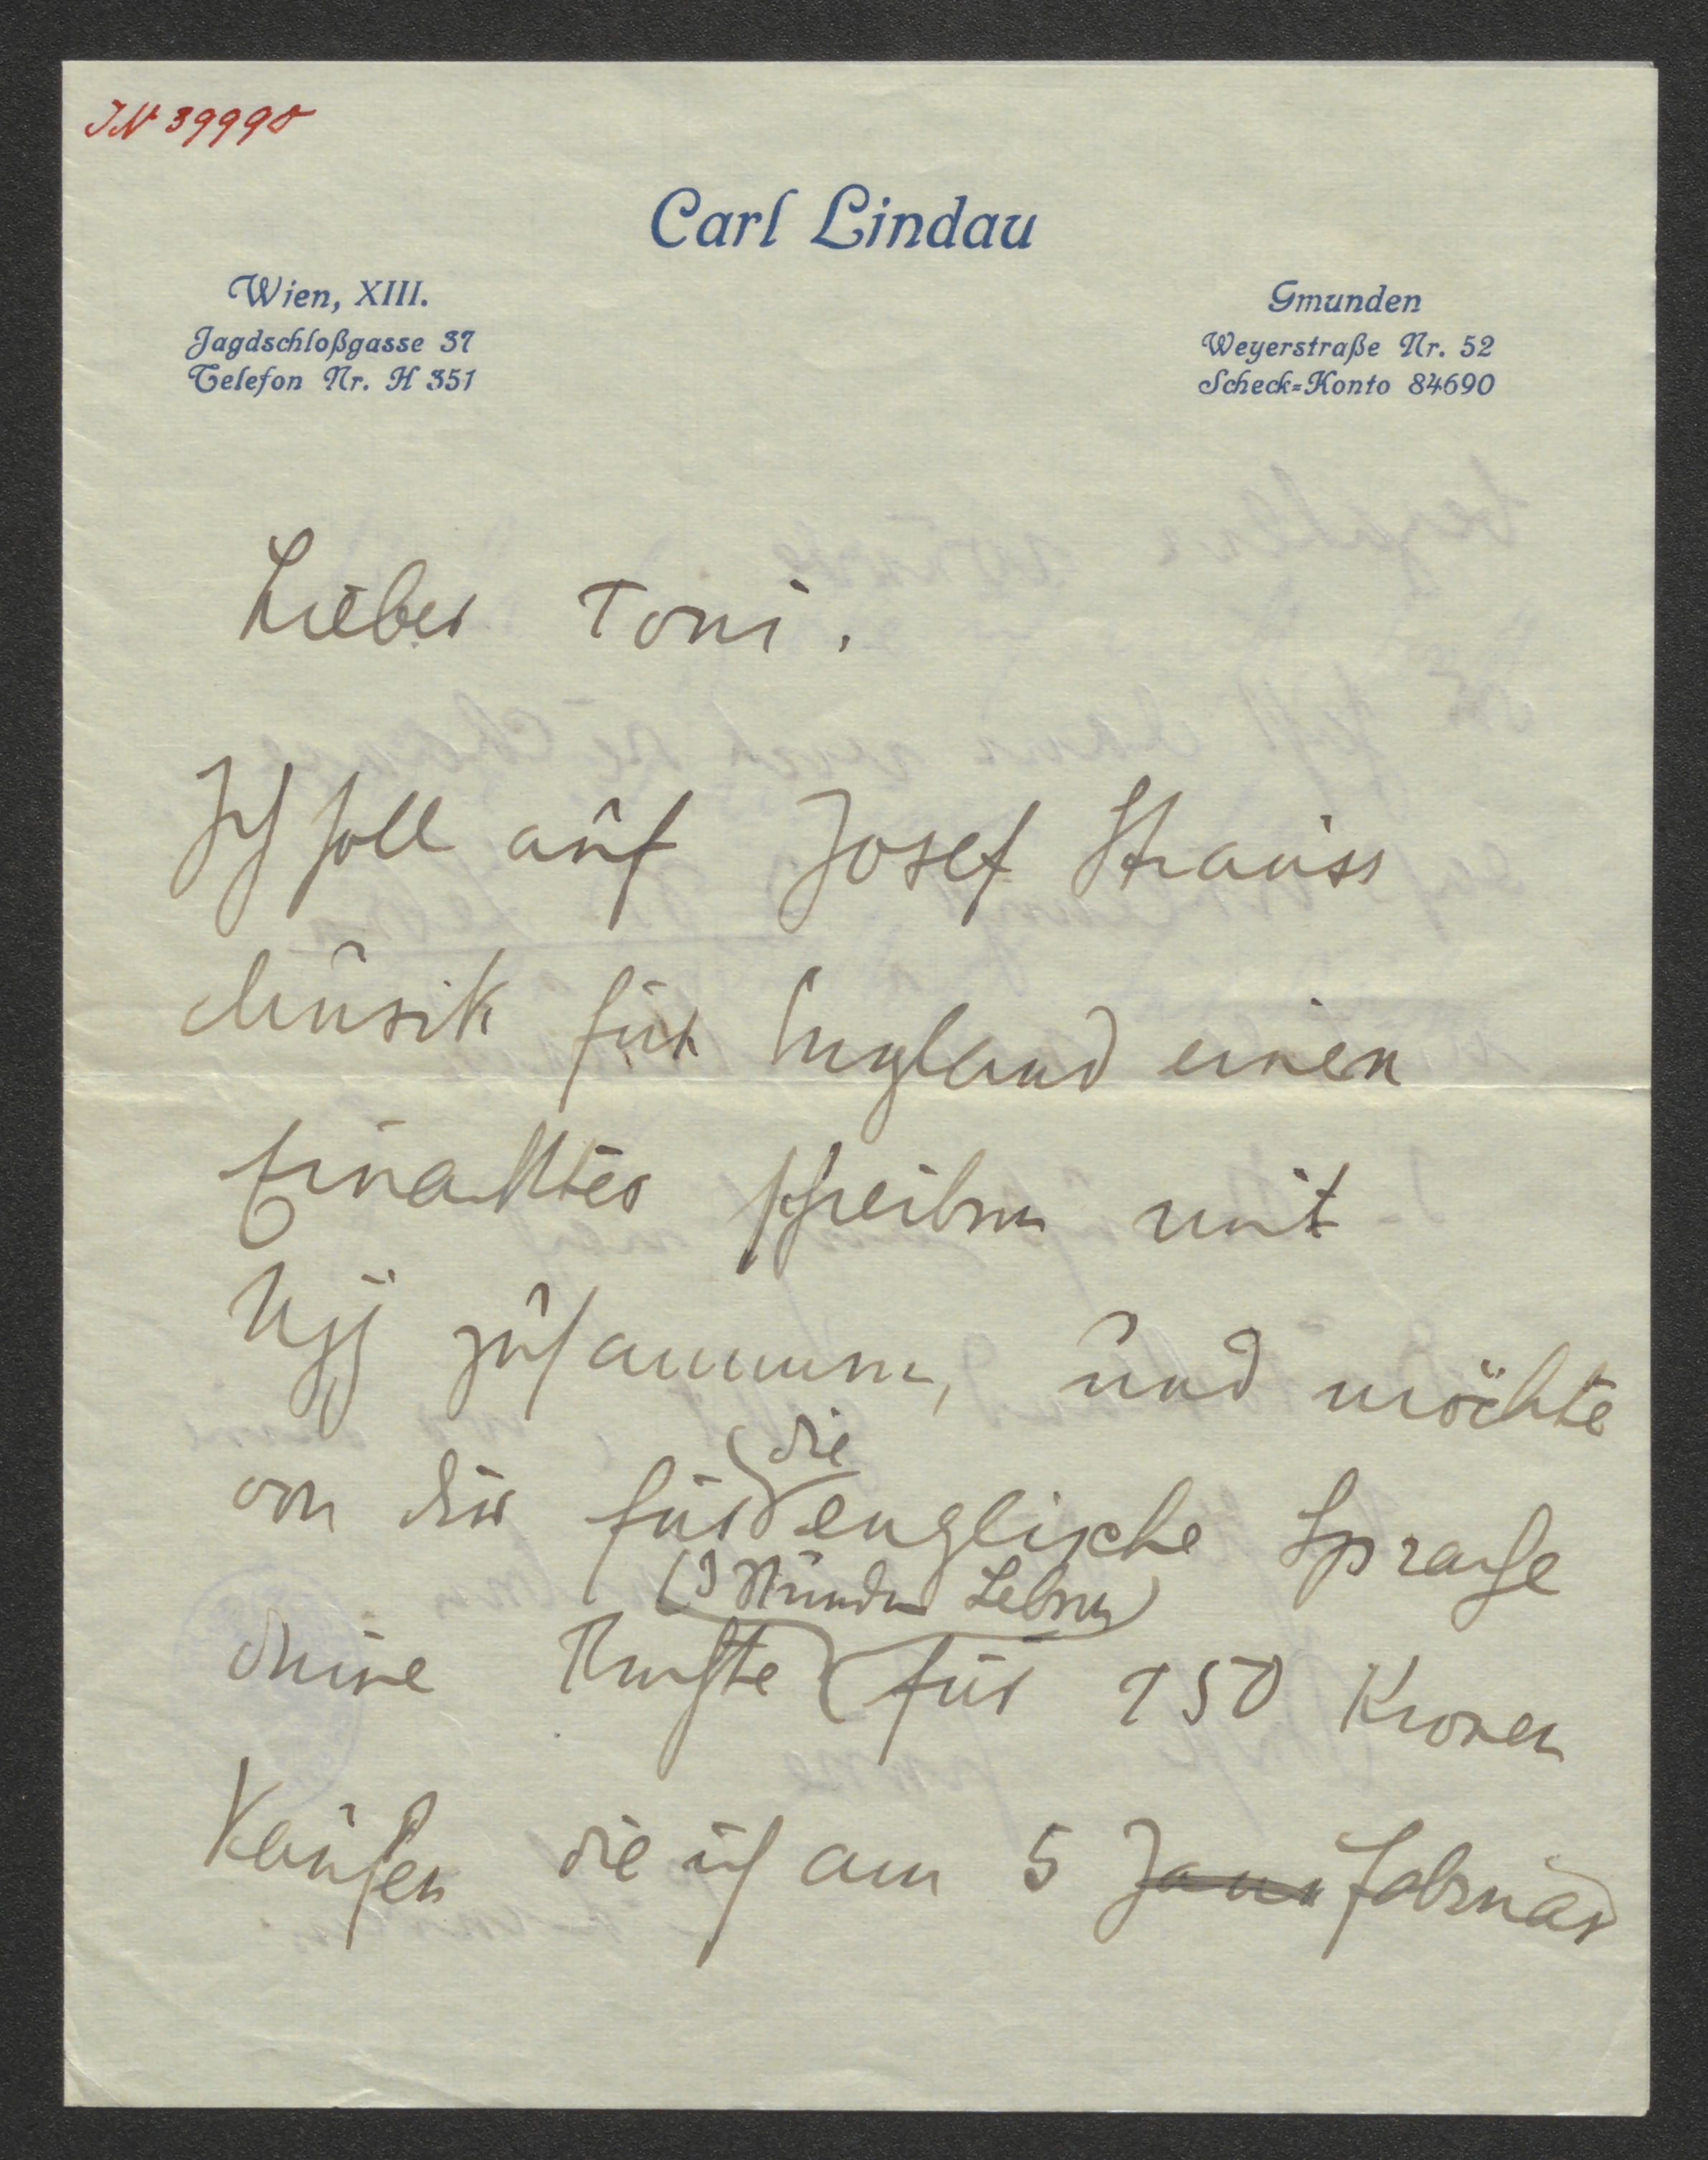 IN 39990
Carl Lindau
Wien, XIII.
Jagdschloßgasse 37
Telefon Nr. H 351
Gmunden
Weyerstraße Nr. 52
Scheck-Konto 84690
Lieber Toni.
Ich soll auf Josef Strauss
Musik für England einen
Einakter schreiben mit
zusammen, und möchte
von dir für die englische Sprache
(3 Stunden Leben)
deine Rechte für 150 Kronen
Kaufen die ich am 5 Janu Februar